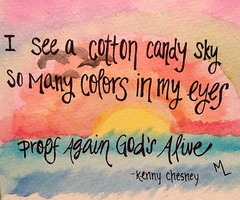 I see a cotton candy sky
so many colors in my eyes
Proof Again God's Alive
-kenny chesney
ML